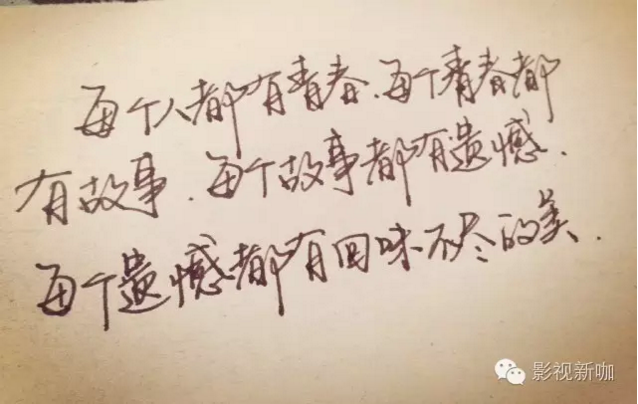 每个人都有青春.每个青春都
有故事.每个故事都有遗憾.
每个遗憾都有回味不尽的美.
影视新咖